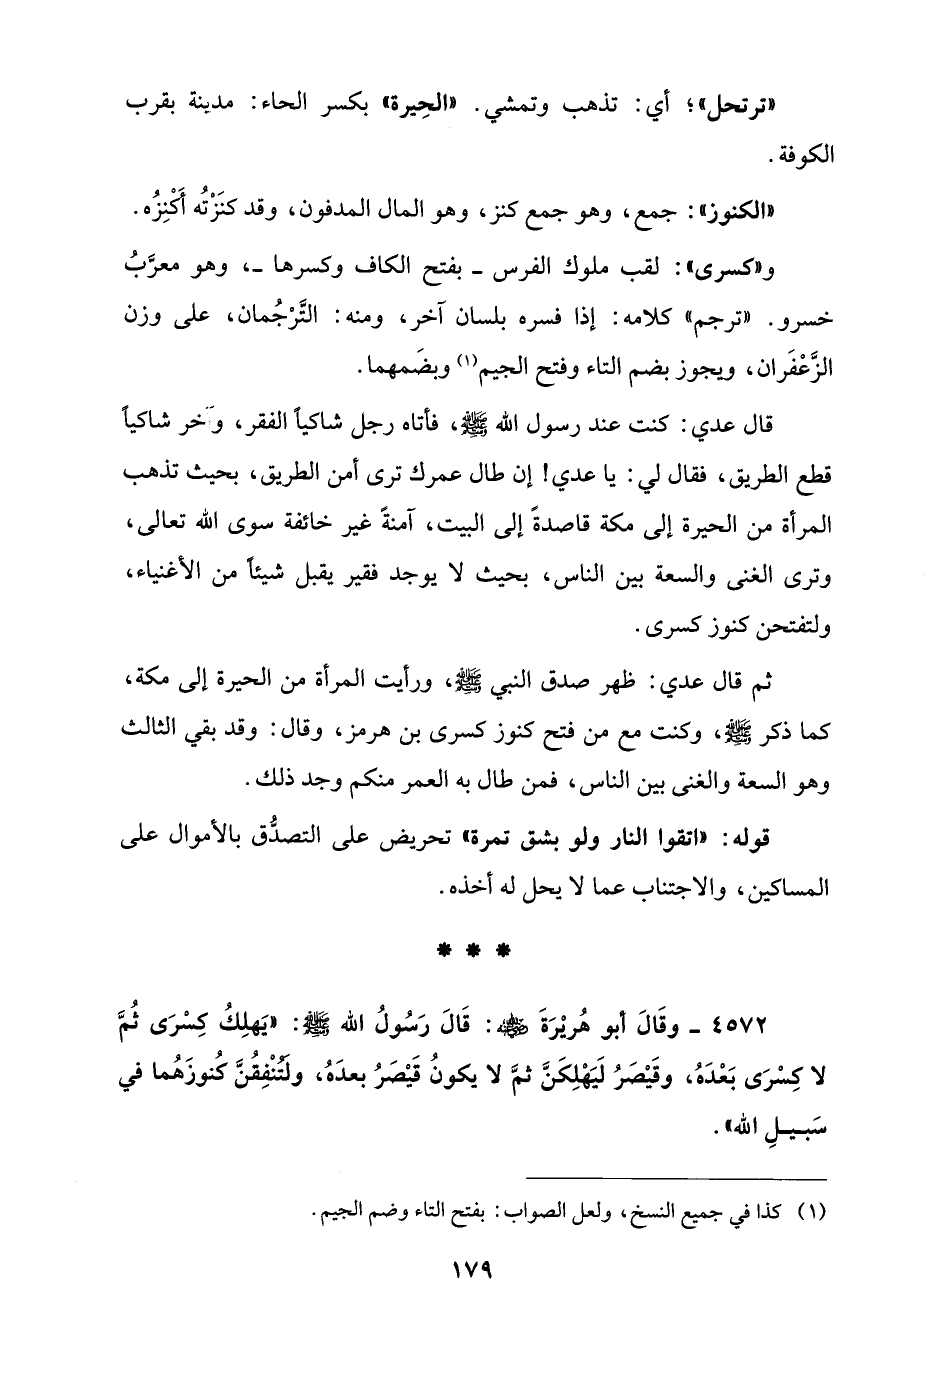 «ترتحل»؛ أي: تذهب وتمشي. «الحِيرة» بكسر الحاء: مدينة بقرب
الكوفة.
«الكنوز»: جمع، وهو جمع كنز، وهو المال المدفون، وقد كنَزْتُه أَكْنِزُه.
و«كسرى»: لقب ملوك الفرس ـ بفتح الكاف وكسرها ـ، وهو معرَّبُ
خسرو. «ترجم» كلامه: إذا فسره بلسان آخر، ومنه: التَّرْجُمان، على وزن
الزَّعْفَران، ويجوز بضم التاء وفتح الجيم(١) وبضَمهما.
قال عدي: كنت عند رسول الله ﷺ، فأتاه رجل شاكياً الفقر، وآخر شاكياً
قطع الطريق، فقال لي: يا عدي! إن طال عمرك ترى أمن الطريق، بحيث تذهب
المرأة من الحيرة إلى مكة قاصدةً إلى البيت، آمنةً غير خائفة سوى الله تعالى،
وترى الغنى والسعة بين الناس، بحيث لا يوجد فقير يقبل شيئاً من الأغنياء،
ولتفتحن كنوز كسرى.
ثم قال عدي: ظهر صدق النبي ﷺ، ورأيت المرأة من الحيرة إلى مكة،
كما ذكر ﷺ، وكنت مع من فتح كنوز كسرى بن هرمز، وقال: وقد بقي الثالث
وهو السعة والغنى بين الناس، فمن طال به العمر منكم وجد ذلك.
قوله: «اتقوا النار ولو بشق تمرة» تحريض على التصدُّق بالأموال على
المساكين، والاجتناب عما لا يحل له أخذه.
* * *
٤٥٧٢ ـ وقَالَ أبو هُرَيْرَةَ ﵁: قَالَ رَسُولُ الله ﷺ: «يَهلِكُ كِسْرَى ثُمَّ
لا كِسْرَى بَعْدَهُ، وقَيْصَرُ لَيَهْلِكَنَّ ثمَّ لا يكونُ قَيْصَرُ بعدَهُ، ولَتُنْفِقُنَّ كُنوزَهُما في
سَبيلِ الله».
(١) كذا في جميع النسخ، ولعل الصواب: بفتح التاء وضم الجيم.
١٧٩